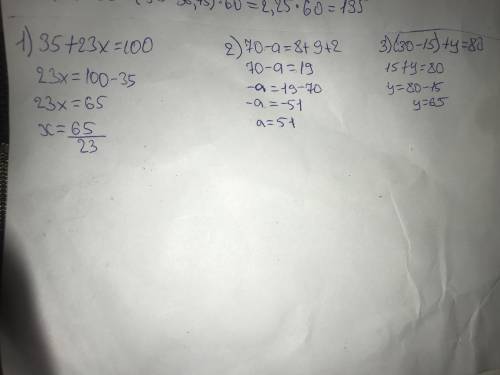 )·60=2,25·60=135
1) 35+23x=100
23x=100-35
23x=65
x=65/23
2) 70-a=8+9+2
70-a=19
-a=19-70
-a=-51
a=51
3) (30-15)+y=80
15+y=80
y=80-15
y=65